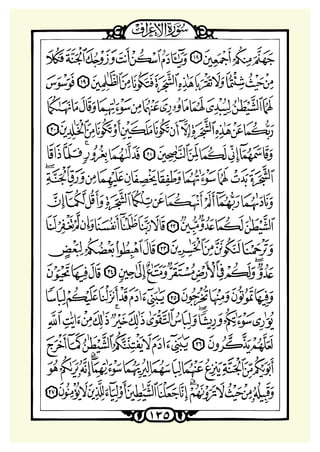 سُورَةُ الأَعْرَافِ
جَهَنَّمَ مِنكُمْ أَجْمَعِينَ ١٨ وَيَٰٓـَٔادَمُ ٱسْكُنْ أَنتَ وَزَوْجُكَ ٱلْجَنَّةَ فَكُلَا
مِنْ حَيْثُ شِئْتُمَا وَلَا تَقْرَبَا هَٰذِهِ ٱلشَّجَرَةَ فَتَكُونَا مِنَ ٱلظَّٰلِمِينَ ١٩ فَوَسْوَسَ
لَهُمَا ٱلشَّيْطَٰنُ لِيُبْدِيَ لَهُمَا مَا وُۥرِيَ عَنْهُمَا مِن سَوْءَٰتِهِمَا وَقَالَ مَا نَهَىٰكُمَا
رَبُّكُمَا عَنْ هَٰذِهِ ٱلشَّجَرَةِ إِلَّآ أَن تَكُونَا مَلَكَيْنِ أَوْ تَكُونَا مِنَ ٱلْخَٰلِدِينَ ٢٠
وَقَاسَمَهُمَآ إِنِّي لَكُمَا لَمِنَ ٱلنَّٰصِحِينَ ٢١ فَدَلَّىٰهُمَا بِغُرُورٍ فَلَمَّا ذَاقَا
ٱلشَّجَرَةَ بَدَتْ لَهُمَا سَوْءَٰتُهُمَا وَطَفِقَا يَخْصِفَانِ عَلَيْهِمَا مِن وَرَقِ ٱلْجَنَّةِ
وَنَادَىٰهُمَا رَبُّهُمَآ أَلَمْ أَنْهَكُمَا عَن تِلْكُمَا ٱلشَّجَرَةِ وَأَقُل لَّكُمَآ إِنَّ
ٱلشَّيْطَٰنَ لَكُمَا عَدُوٌّ مُّبِينٌ ٢٢ قَالَا رَبَّنَا ظَلَمْنَآ أَنفُسَنَا وَإِن لَّمْ تَغْفِرْ لَنَا
وَتَرْحَمْنَا لَنَكُونَنَّ مِنَ ٱلْخَٰسِرِينَ ٢٣ قَالَ ٱهْبِطُوا۟ بَعْضُكُمْ لِبَعْضٍ
عَدُوٌّ وَلَكُمْ فِي ٱلْأَرْضِ مُسْتَقَرٌّ وَمَتَٰعٌ إِلَىٰ حِينٍ ٢٤ قَالَ فِيهَا تَحْيَوْنَ
وَفِيهَا تَمُوتُونَ وَمِنْهَا تُخْرَجُونَ ٢٥ يَٰبَنِيٓ ءَادَمَ قَدْ أَنزَلْنَا عَلَيْكُمْ لِبَاسًا
يُوَٰرِي سَوْءَٰتِكُمْ وَرِيشًا وَلِبَاسُ ٱلتَّقْوَىٰ ذَٰلِكَ خَيْرٌ ذَٰلِكَ مِنْ ءَايَٰتِ ٱللَّهِ
لَعَلَّهُمْ يَذَّكَّرُونَ ٢٦ يَٰبَنِيٓ ءَادَمَ لَا يَفْتِنَنَّكُمُ ٱلشَّيْطَٰنُ كَمَآ أَخْرَجَ
أَبَوَيْكُم مِّنَ ٱلْجَنَّةِ يَنزِعُ عَنْهُمَا لِبَاسَهُمَا لِيُرِيَهُمَا سَوْءَٰتِهِمَآ إِنَّهُۥ يَرَىٰكُمْ هُوَ
وَقَبِيلُهُۥ مِنْ حَيْثُ لَا تَرَوْنَهُمْ إِنَّا جَعَلْنَا ٱلشَّيَٰطِينَ أَوْلِيَآءَ لِلَّذِينَ لَا يُؤْمِنُونَ ٢٧
١٣٥